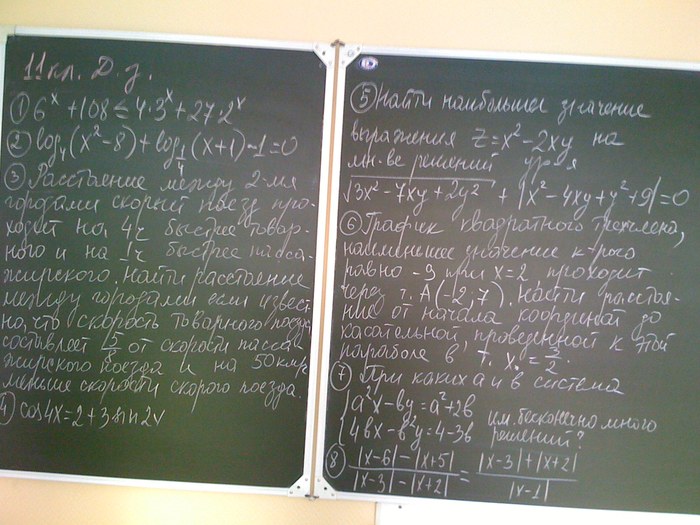 11кл. Д.з.
① 6^x + 108 ≤ 4·3^x + 27·2^x
② log_4(x²-8) + log_{1/4}(x+1) - 1 = 0
③ Расстояние между 2-мя
городами скорый поезд про-
ходит на 4ч быстрее товар-
ного и на 1ч быстрее пасса-
жирского. Найти расстояние
между городами если извест-
но, что скорость товарного поезда
составляет 5/8 от скорости пасса
жирского поезда и на 50 км/ч
меньше скорости скорого поезда.
④ cos4x = 2 + 3sin2x
⑤ Найти наибольшее значение
выражения z = x² - 2xy на
мн-ве решений ур-я
√(3x² - 7xy + 2y²) + |x² - 4xy + y² + 9| = 0
⑥ График квадратного трехчлена,
наименьшее значение к-рого
равно -9 при x = 2, проходит
через т. A(-2,7). Найти расстоя-
ние от начала координат до
касательной, проведенной к этой
параболе в т. x₀ = 3/2
⑦ При каких а и в система
{ a²x - вy = a² + 2в
{ 4вx - в²y = 4 - 3в им. бесконечно много
решений?
⑧ (|x-6| - |x+5|)/(|x-3| - |x+2|) = (|x-3| + |x+2|)/|x-1|